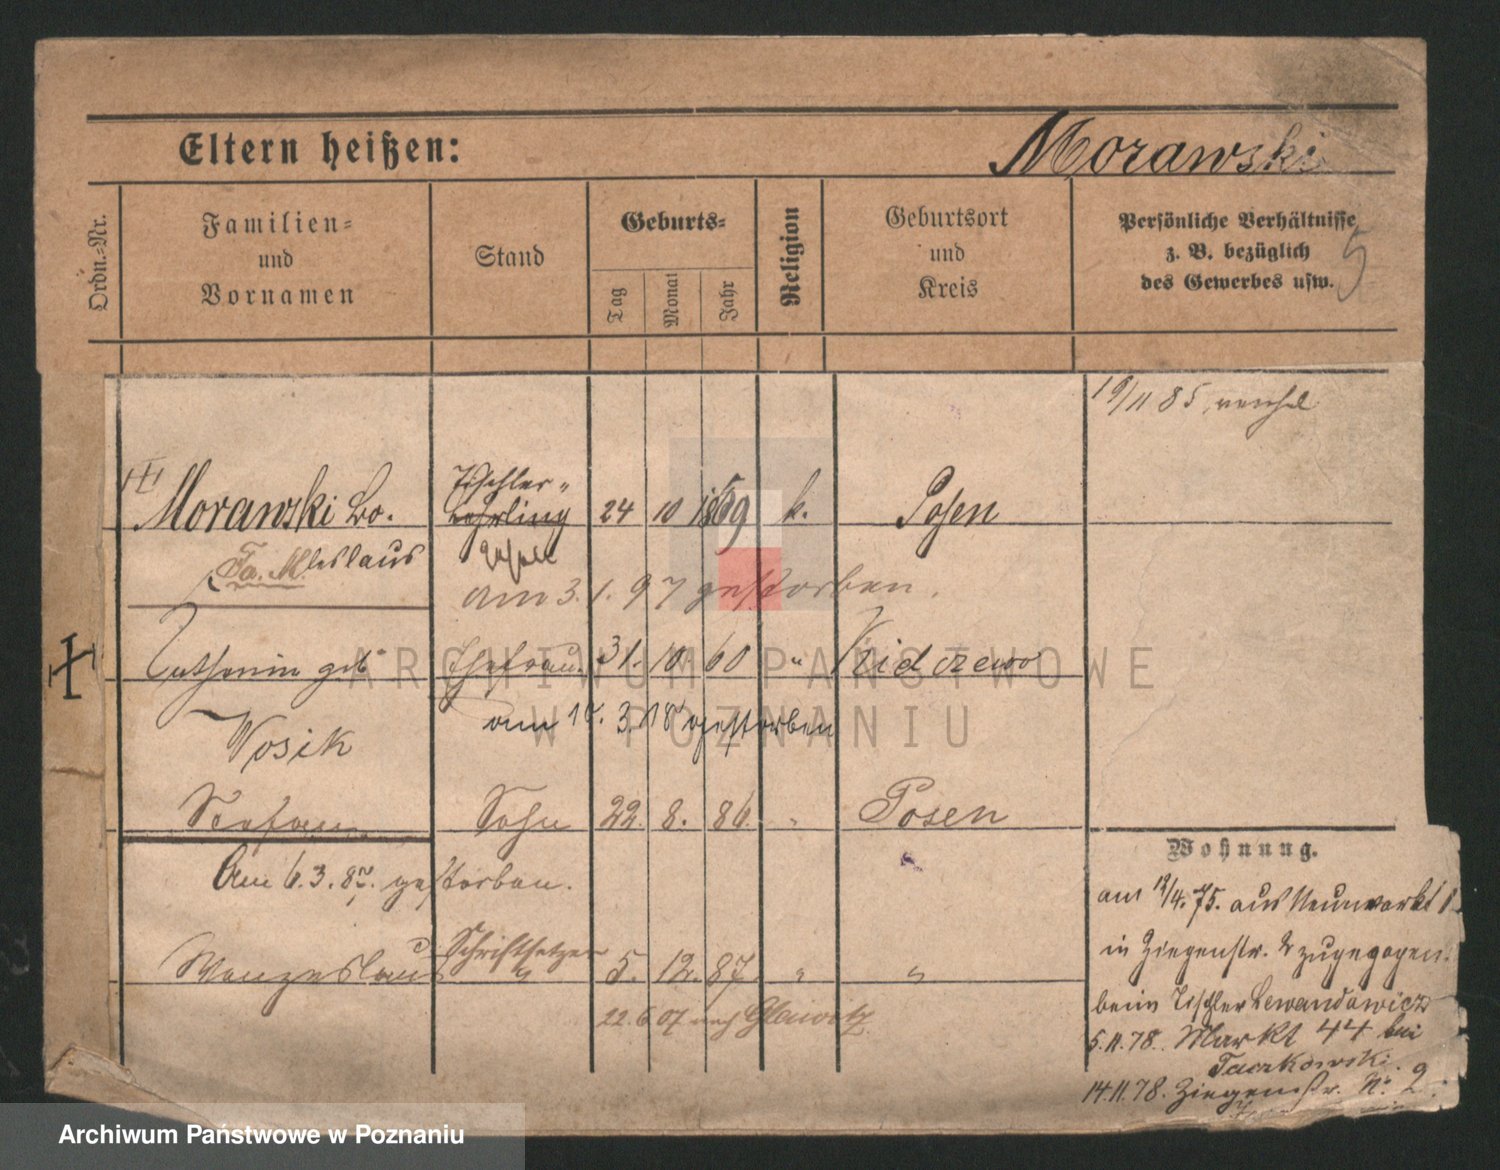 Eltern heißen: Morawski
Ordn.-Nr.
Familien-
und
Vornamen
Stand
Geburts-
Tag
Monat
Jahr
Religion
Geburtsort
und
Kreis
Persönliche Verhältnisse
z. B. bezüglich
des Gewerbes usw.
5
19/11 85
Tischler-
Morawski Lo. Lehrling 24 10 1859 k. Posen
Geselle
am 3.1.97 gestorben.
geb. Ehefrau 31. 10 60 "
am 3. 18 gestorben
Wosik
Stefan Sohn 22. 8. 86. " Posen
Am 6.3.87. gestorben.
Wenzeslaus Schriftsetzer 5. 12. 87. " "
22.6.07 nach Gleiwitz
Wohnung.
am 12/4.75. aus Neumarkt
in Ziegenstr. 2 zugezogen.
beim Tischler Lewandowicz
5.11.78. Markt 44 bei
Taczkowski.
14.11.78. Ziegenstr. No 2
ARCHIWUM PAŃSTWOWE
W POZNANIU
Archiwum Państwowe w Poznaniu